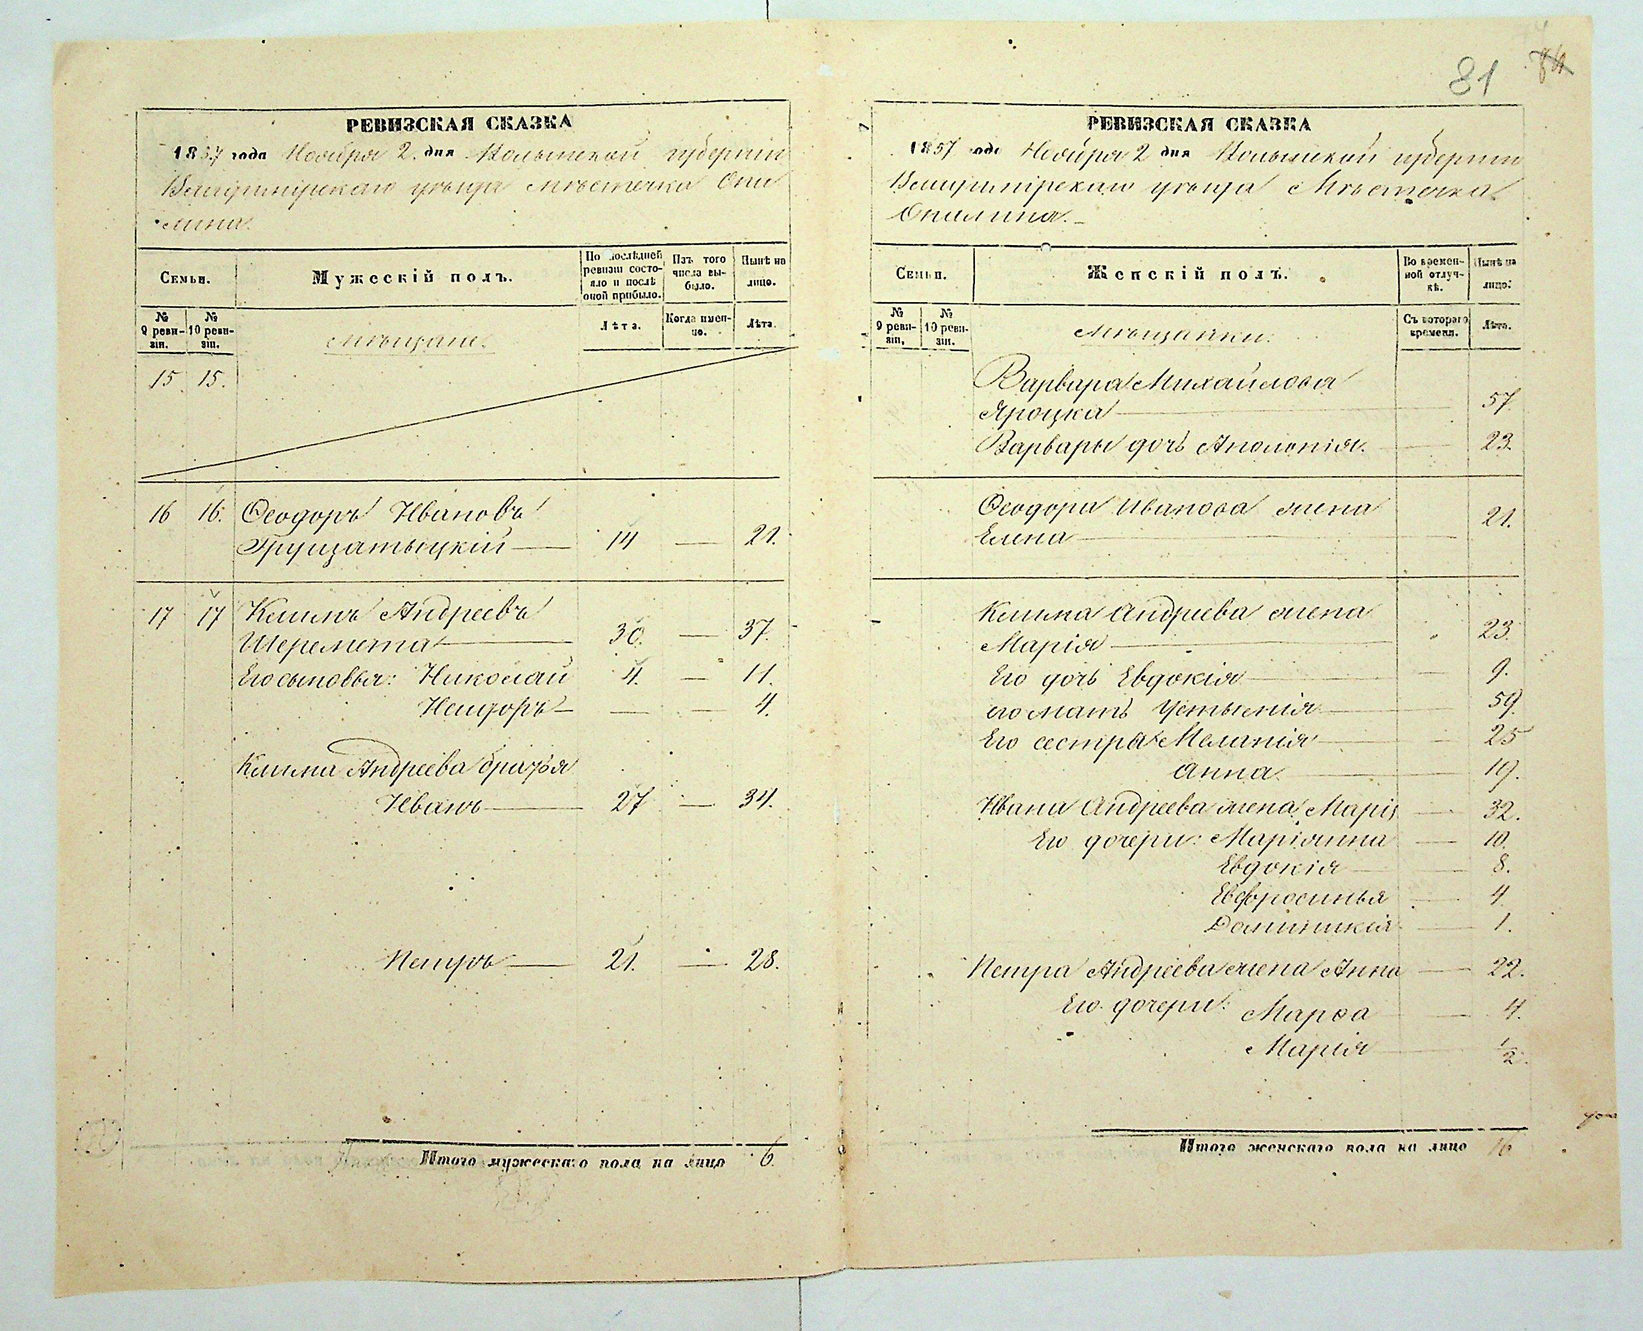 81
РЕВИЗСКАЯ СКАЗКА
1857 года Ноября 2 дня Волынской губернии
Владимірскаго уѣзда мѣстечка Опа
лина.
Семьи.
Мужескій полъ.
По послѣдней ревизіи состояло и послѣ оной прибыло.
Изъ того числа выбыло.
Нынѣ на лицо.
№ 9 ревизіи.
№ 10 ревизіи.
мѣщане.
Лѣта.
Когда именно.
Лѣта.
15 15.
16 16. Ѳеодоръ Ивановъ
14 — 21.
17 17 Климъ Андреевъ
Шеремета — 30. — 37.
Его сыновья: Николай 4. — 11.
— — 4.
Клима Андреева братья
Иванъ — 27 — 34.
Петръ — 21. — 28.
Итого мужескаго пола на лицо 6.
РЕВИЗСКАЯ СКАЗКА
1857 года Ноября 2 дня Волынской губернии
Владимірскаго уѣзда Мѣстечка
Опалина.
Семьи.
Женскій полъ.
Во временной отлучкѣ.
Нынѣ на лицо.
№ 9 ревизіи.
№ 10 ревизіи.
мѣщанки.
Съ котораго времени.
Лѣта.
Варвара Михайлова
Яроцка — 57
Варвары дочь Аполонія. — 23.
Ѳеодора Иванова жена
Елена — 21.
Клима Андреева жена
Марія — 23.
Его дочь Евдокія — 9.
его мать Устынія — 59
Его сестры Меланія — 25
Анна. — 19.
Ивана Андреева жена Марія — 32.
Его дочери: Маріянна — 10.
Евдокія — 8.
Евфросинья — 4
Доминикія — 1.
Петра Андреева жена Анна — 22.
Его дочери: Марѳа — 4.
Марія — 1/2.
Итого женскаго пола на лицо 16